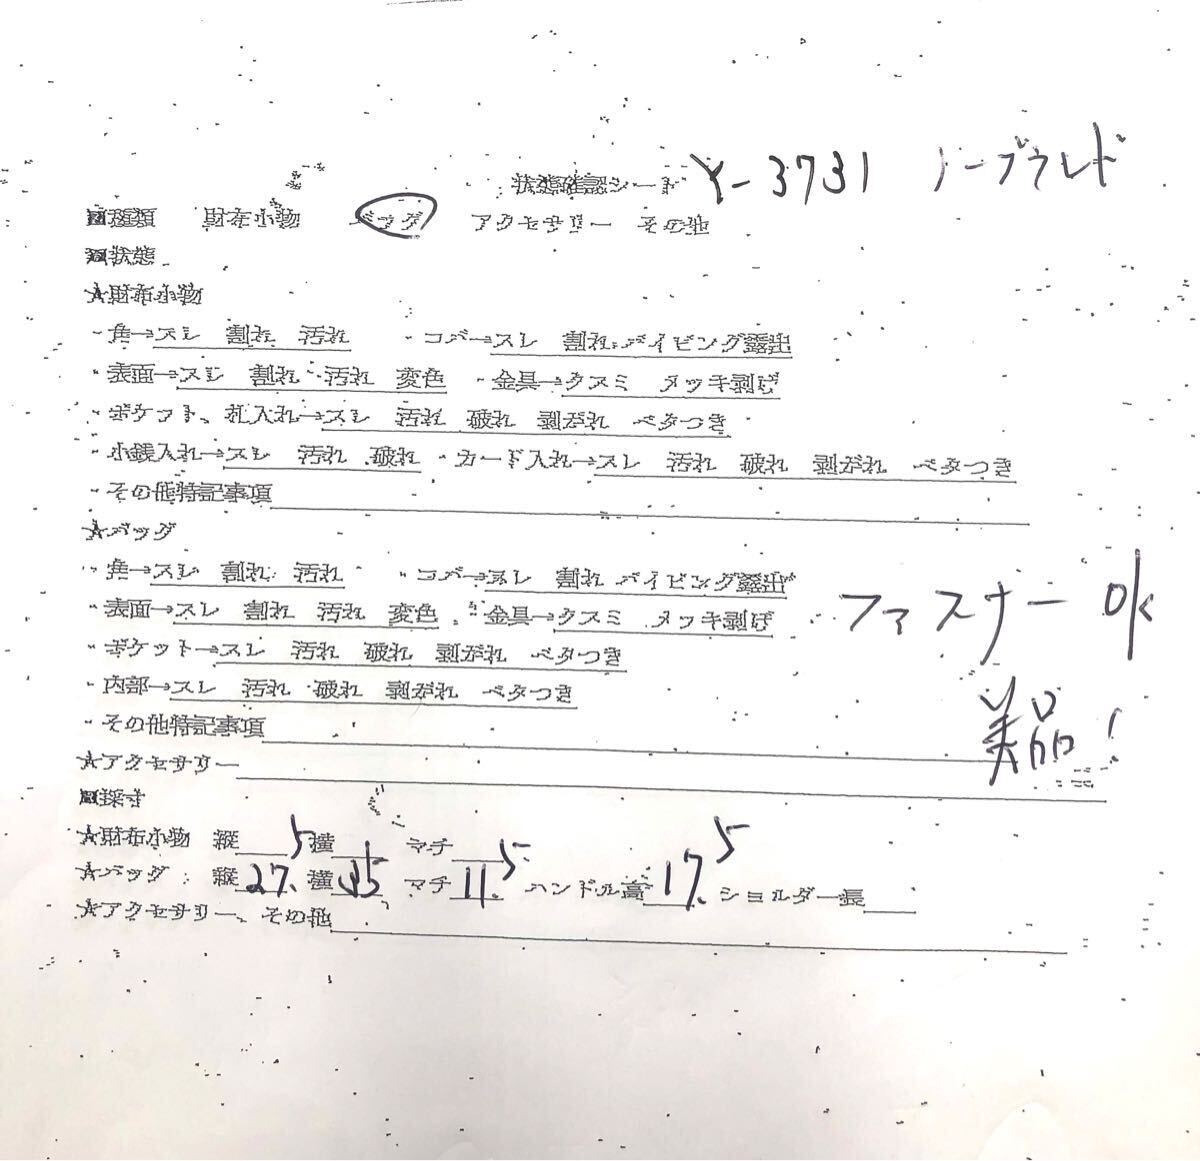 状態確認シート Y-3731 ノーブランド
■種類 財布小物 バッグ アクセサリー その他
■状態
★財布小物
・角→スレ 割れ 汚れ ・コバ→スレ 割れ パイピング露出
・表面→スレ 割れ 汚れ 変色 ・金具→クスミ メッキ剥げ
・ポケット、札入れ→スレ 汚れ 破れ 剥がれ ベタつき
・小銭入れ→スレ 汚れ 破れ ・カード入れ→スレ 汚れ 破れ 剥がれ ベタつき
・その他特記事項
★バッグ
・角→スレ 割れ 汚れ ・コバ→スレ 割れ パイピング露出
・表面→スレ 割れ 汚れ 変色 ・金具→クスミ メッキ剥げ ファスナー OK
・ポケット→スレ 汚れ 破れ 剥がれ ベタつき
・内部→スレ 汚れ 破れ 剥がれ ベタつき
・その他特記事項 美品!
★アクセサリー
■採寸
★財布小物 縦 横 マチ
★バッグ 縦 27.5 横 35 マチ 11.5 ハンドル高 17.5 ショルダー長
★アクセサリー、その他